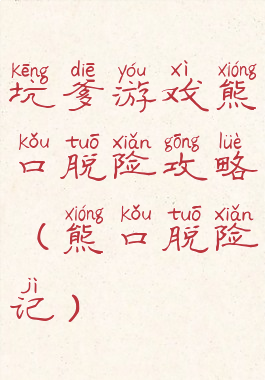 kēng diē yóu xì xióng
坑爹游戏熊
kǒu tuō xiǎn gōng lüè
口脱险攻略
xióng kǒu tuō xiǎn
（熊口脱险
jì
记）